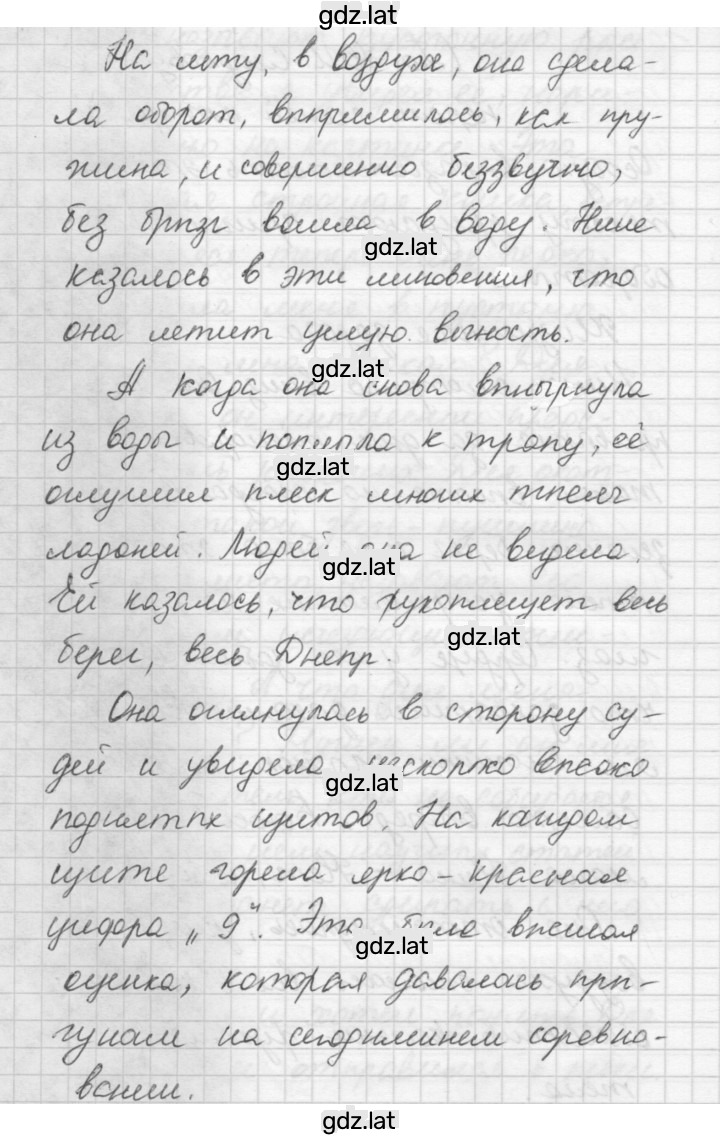 gdz.lat
На лету, в воздухе, она сдела-
ла оборот, выпрямилась, как пру-
жина, и совершенно беззвучно,
без брызг вошла в воду. Нине
gdz.lat
казалось в эти мгновения, что
она летит целую вечность.
gdz.lat
А когда она снова вынырнула
из воды и поплыла к трапу, её
gdz.lat
оглушил плеск многих тысяч
ладоней. Людей она не видела.
gdz.lat
Ей казалось, что рукоплещет весь
gdz.lat
берег, весь Днепр.
Она оглянулась в сторону су-
дей и увидела несколько высоко
gdz.lat
поднятых щитов. На каждом
щите горела ярко-красная
цифра „9“. Это была высшая
gdz.lat
оценка, которая давалась пры-
гунам на сегодняшнем соревно-
вании.
gdz.lat